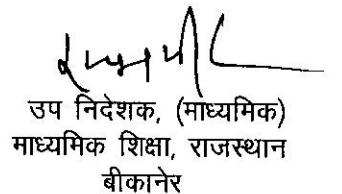 उप निदेशक, (माध्यमिक)
माध्यमिक शिक्षा, राजस्थान
बीकानेर